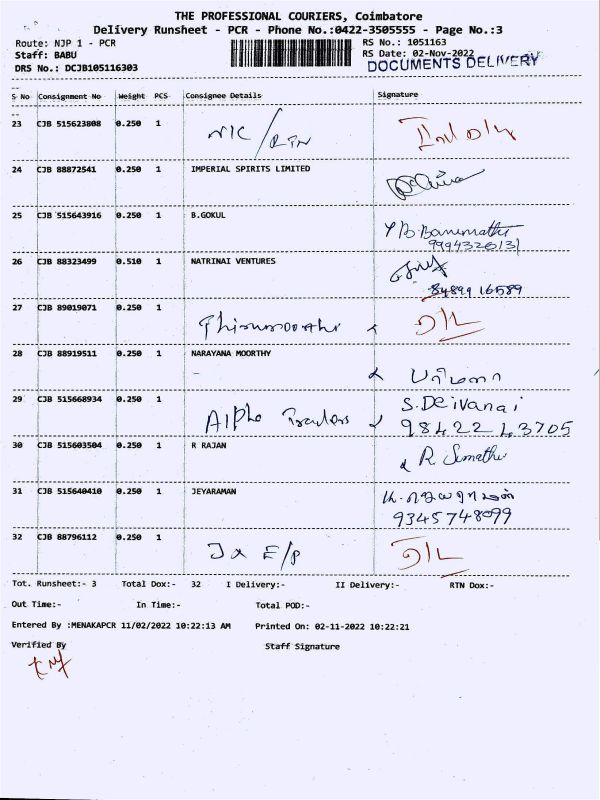 THE PROFESSIONAL COURIERS, Coimbatore
Delivery Runsheet - PCR - Phone No.:0422-3505555 - Page No.:3
Route: NJP 1 - PCR RS No.: 1051163
Staff: BABU RS Date: 02-Nov-2022
DRS No.: DCJB105116303 DOCUMENTS DELIVERY
S No Consignment No Weight PCS Consignee Details Signature
23 CJB 515623808 0.250 1
24 CJB 88872541 0.250 1 IMPERIAL SPIRITS LIMITED
25 CJB 515643916 0.250 1 B.GOKUL
26 CJB 88323499 0.510 1 NATRINAI VENTURES
8489916589
27 CJB 89019071 0.250 1
28 CJB 88919511 0.250 1 NARAYANA MOORTHY
29 CJB 515668934 0.250 1 Alpha Traders S.Deivanai
9842243705
30 CJB 515603504 0.250 1 R RAJAN R. Sumathi
31 CJB 515640410 0.250 1 JEYARAMAN
9345748099
32 CJB 88796112 0.250 1
Tot. Runsheet:- 3 Total Dox:- 32 I Delivery:- II Delivery:- RTN Dox:-
Out Time:- In Time:- Total POD:-
Entered By :MENAKAPCR 11/02/2022 10:22:13 AM Printed On: 02-11-2022 10:22:21
Verified By Staff Signature